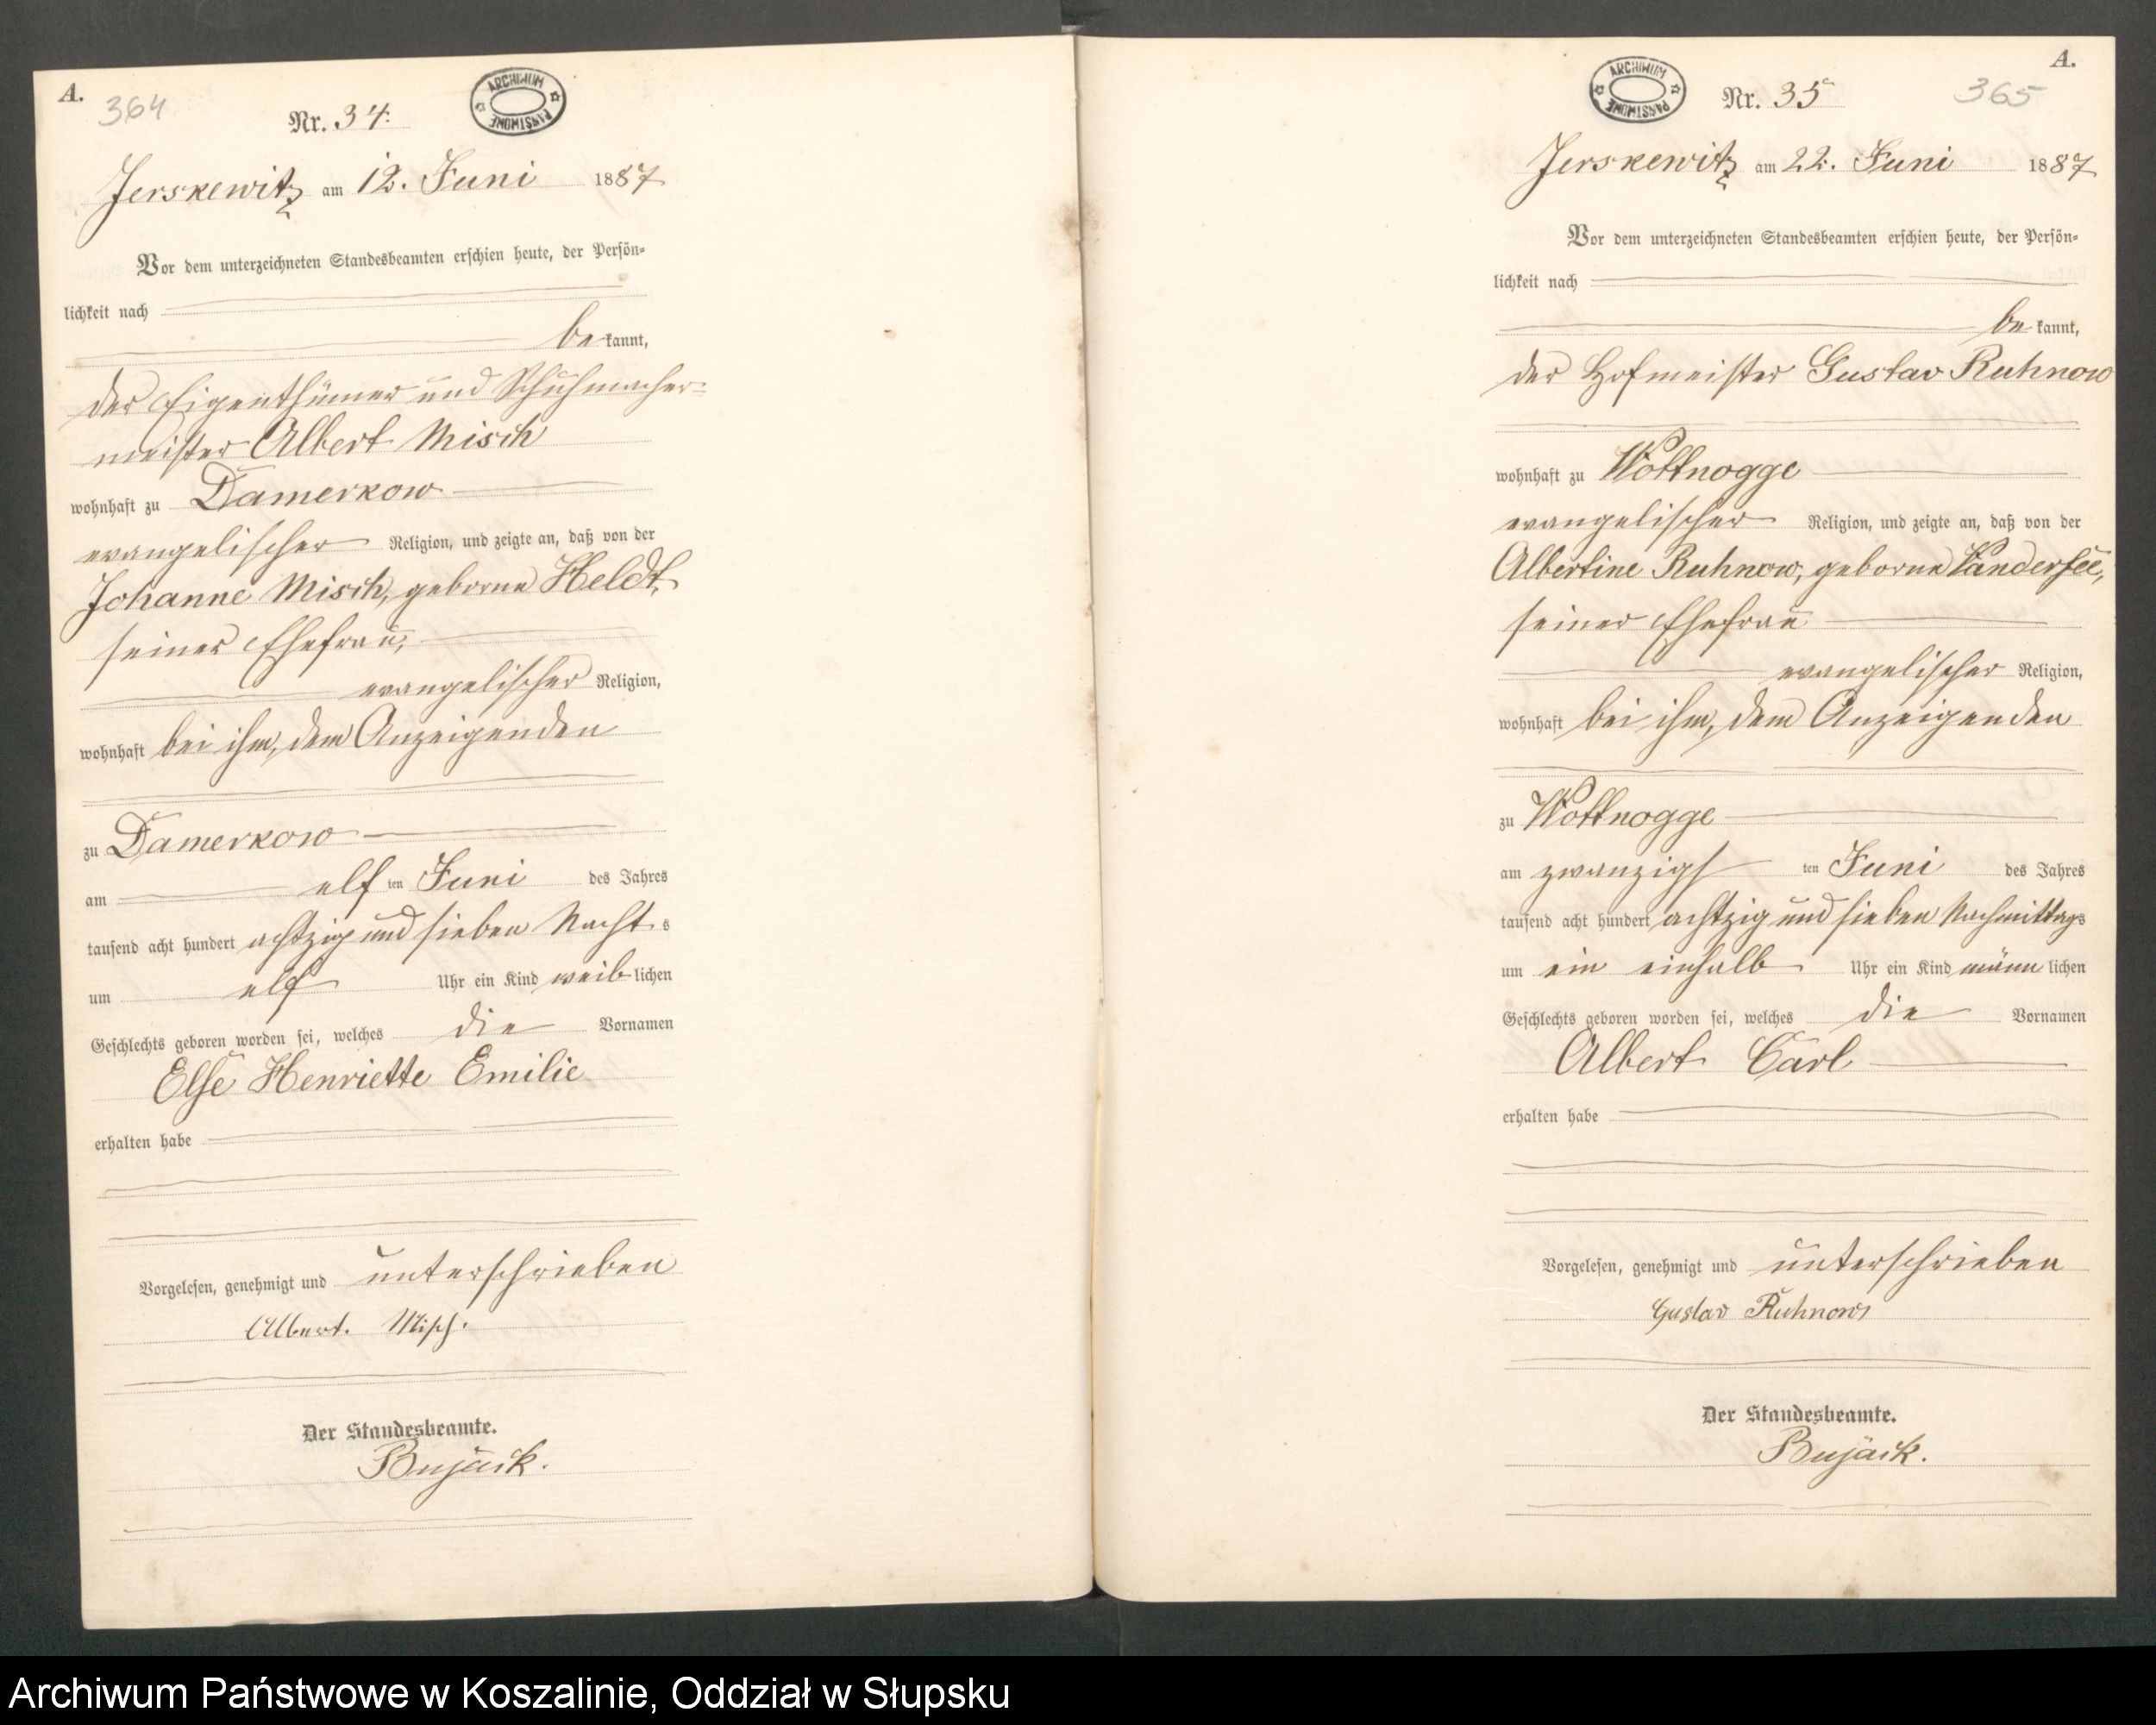 A.
364
Nr. 34.
ARCHIWUM PAŃSTWOWE
Jerskewitz am 12. Juni 1887
Vor dem unterzeichneten Standesbeamten erschien heute, der Persön-
lichkeit nach
be kannt,
der Eigenthümer und Schuhmacher-
meister Albert Misch
wohnhaft zu Damerkow
evangelischer Religion, und zeigte an, daß von der
Johanne Misch, geborne Heldt,
seiner Ehefrau,
evangelischer Religion,
wohnhaft bei ihm, dem Anzeigenden
zu Damerkow
am elf ten Juni des Jahres
tausend acht hundert achtzig und sieben Nacht s
um elf Uhr ein Kind weib lichen
Geschlechts geboren worden sei, welches die Vornamen
Else Henriette Emilie
erhalten habe
Vorgelesen, genehmigt und unterschrieben
Albert. Misch.
Der Standesbeamte.
Bujack.
A.
365
Nr. 35
ARCHIWUM PAŃSTWOWE
Jerskewitz am 22. Juni 1887
Vor dem unterzeichneten Standesbeamten erschien heute, der Persön-
lichkeit nach
be kannt,
der Hofmeister Gustav Ruhnow
wohnhaft zu Wottnogge
evangelischer Religion, und zeigte an, daß von der
Albertine Ruhnow, geborne Vandersee,
seiner Ehefrau
evangelischer Religion,
wohnhaft bei ihm, dem Anzeigenden
zu Wottnogge
am zwanzigs ten Juni des Jahres
tausend acht hundert achtzig und sieben Nachmittags
um ein einhalb Uhr ein Kind männ lichen
Geschlechts geboren worden sei, welches die Vornamen
Albert Carl
erhalten habe
Vorgelesen, genehmigt und unterschrieben
Gustav Ruhnow
Der Standesbeamte.
Bujack.
Archiwum Państwowe w Koszalinie, Oddział w Słupsku